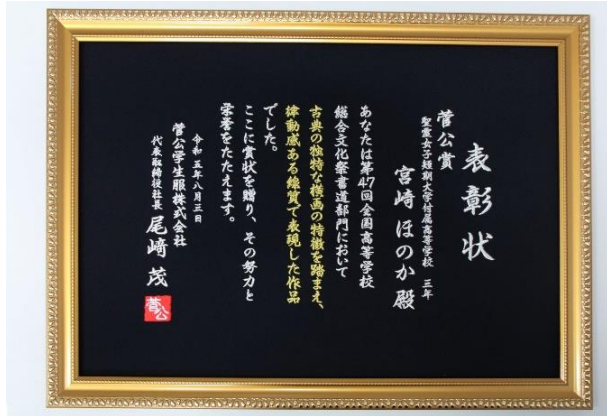 表彰状
菅公賞
聖霊女子短期大学付属高等学校 三年
宮崎 ほのか 殿
あなたは第47回全国高等学校
総合文化祭書道部門において
古典の独特な横画の特徴を踏まえ、
律動感ある線質で表現した作品
でした。
ここに賞状を贈り、その努力と
栄誉をたたえます。
令和五年八月三日
菅公学生服株式会社
代表取締役社長 尾﨑 茂
菅公